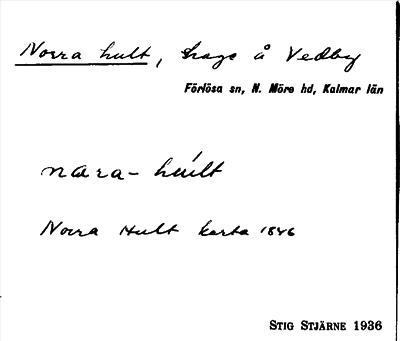 Norra hult, hage å Vedby
Förlösa sn, N. Möre hd, Kalmar län
nara- húlt
Norra Hult karta 1846
STIG STJÄRNE 1936